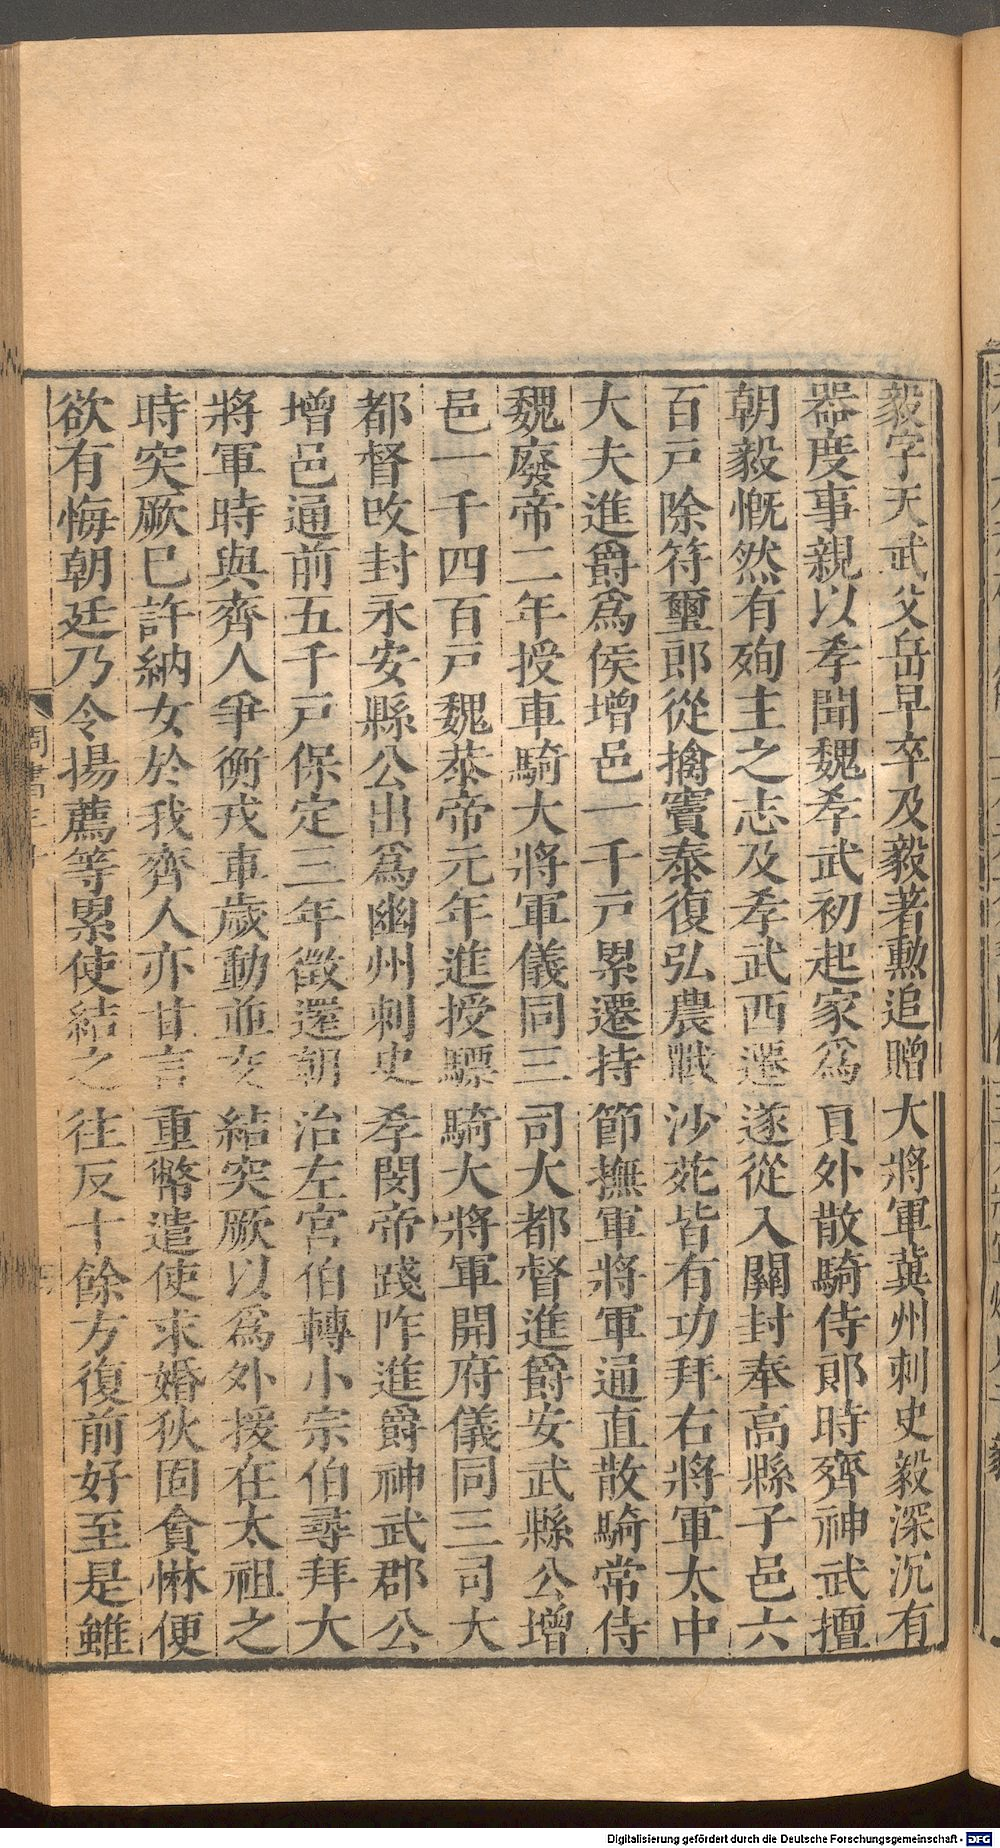 毅字天武父岳早卒及毅著勲追贈大將軍冀州刺史毅深沉有
器度事親以孝聞魏孝武初起家爲貟外散騎侍郎時齊神武擅
朝毅慨然有殉主之志及孝武西遷遂從入關封奉高縣子邑六
百戸除符璽郎從擒竇泰復弘農戰沙苑皆有功拜右將軍太中
大夫進爵爲侯增邑一千戸累遷持節撫軍將軍通直散騎常侍
魏廢帝二年授車騎大將軍儀同三司大都督進爵安武縣公增
邑一千四百戸魏恭帝元年進授驃騎大將軍開府儀同三司大
都督攺封永安縣公出爲幽州刺史孝閔帝踐阼進爵神武郡公
增邑通前五千戸保定三年徵還朝治左宮伯轉小宗伯尋拜大
將軍時與齊人爭衡戎車歲動並交結突厥以爲外援在太祖之
時突厥巳許納女於我齊人亦甘言重幣遣使求婚狄固貪惏便
欲有悔朝廷乃令揚薦等累使結之往反十餘方復前好至是雖
周書三十
Digitalisierung gefördert durch die Deutsche Forschungsgemeinschaft - DFG